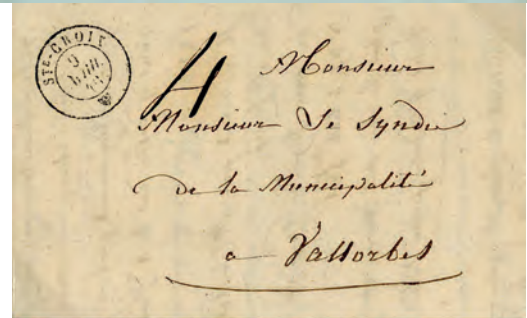 STE-CROIX
9
4
Monsieur
Monsieur Le Syndic
de la Municipalité
a Vallorbes